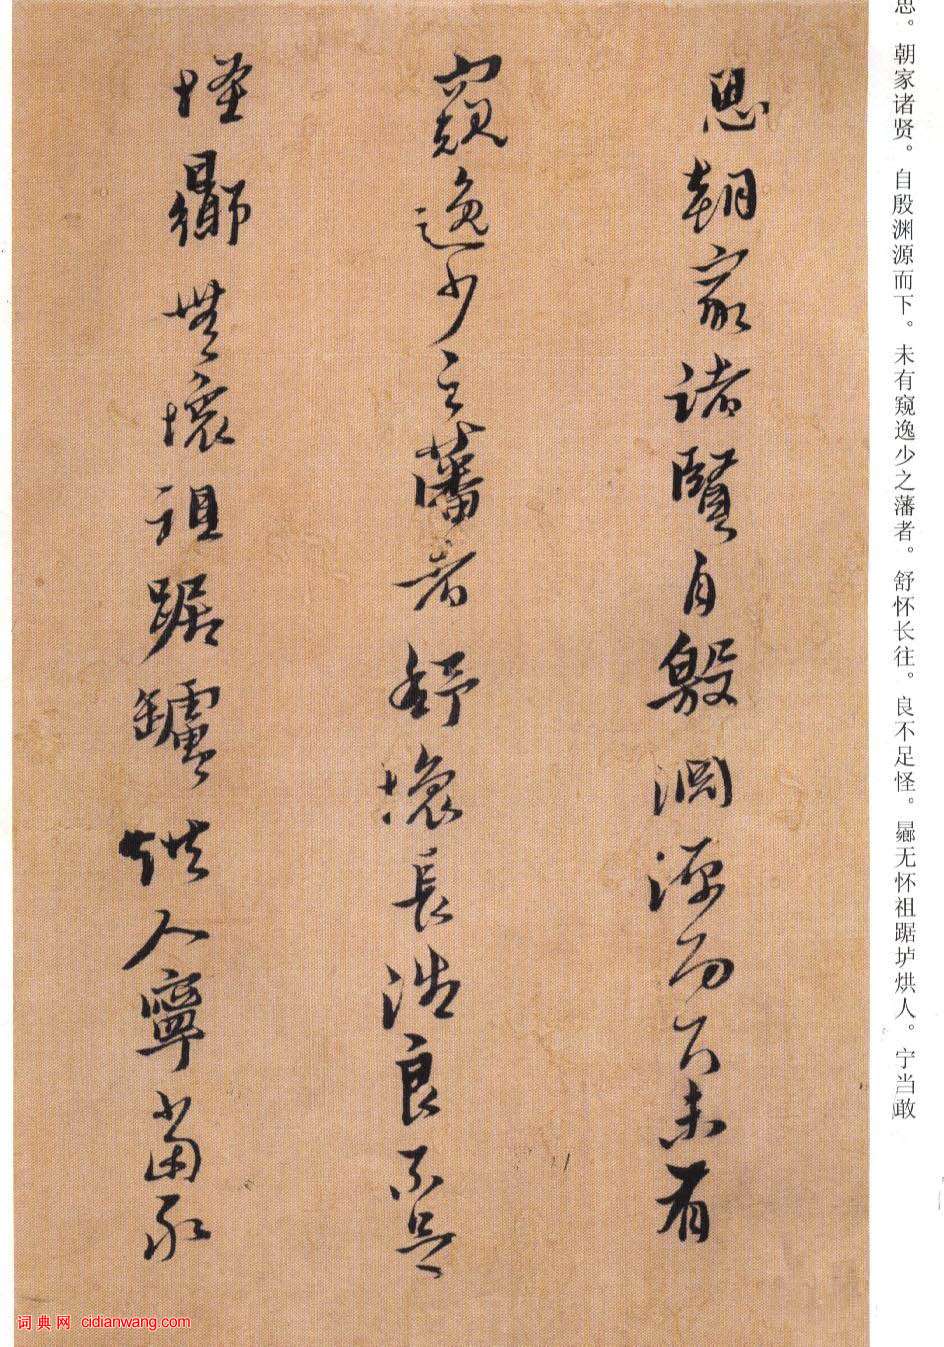 思。朝家诸贤。自殷渊源而下。未有窥逸少之藩者。舒怀长往。良不足怪。无怀祖踞垆烘人。宁当敢
思朝家诸賢自殷渊源而下未有
窺逸少之藩者舒懷長浩良不足
怪無懷祖踞鑪烘人寧當敢
词典网 cidianwang.com